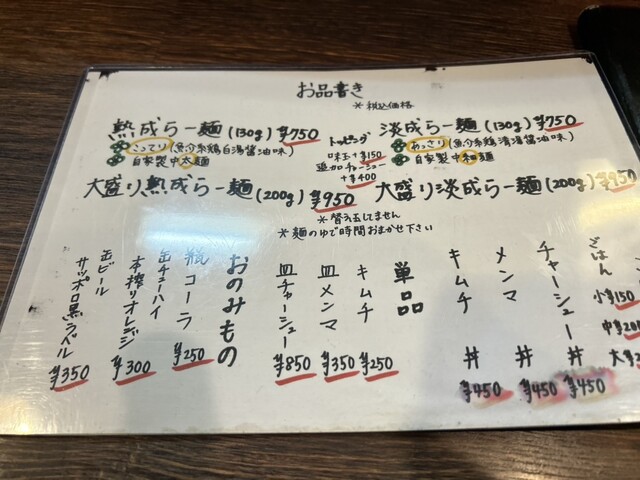 お品書き
＊税込価格
熟成らー麺(130g) ¥750
こってり(魚介系鶏白湯醤油味)
自家製中太麺
大盛り熟成らー麺(200g) ¥950
トッピング
味玉+¥150
追加チャーシュー
+¥400
淡成らー麺(130g) ¥750
あっさり(魚介系鶏清湯醤油味)
自家製中細麺
大盛り淡成らー麺(200g) ¥950
＊替え玉しません
＊麺のゆで時間おまかせ下さい
ごはん
小¥150
中¥200
大¥
チャーシュー丼 ¥450
メンマ丼 ¥450
キムチ丼 ¥450
単品
キムチ ¥250
皿メンマ ¥350
皿チャーシュー ¥850
おのみもの
瓶コーラ ¥250
缶チューハイ
本搾りオレンジ ¥300
缶ビール
サッポロ黒ラベル ¥350